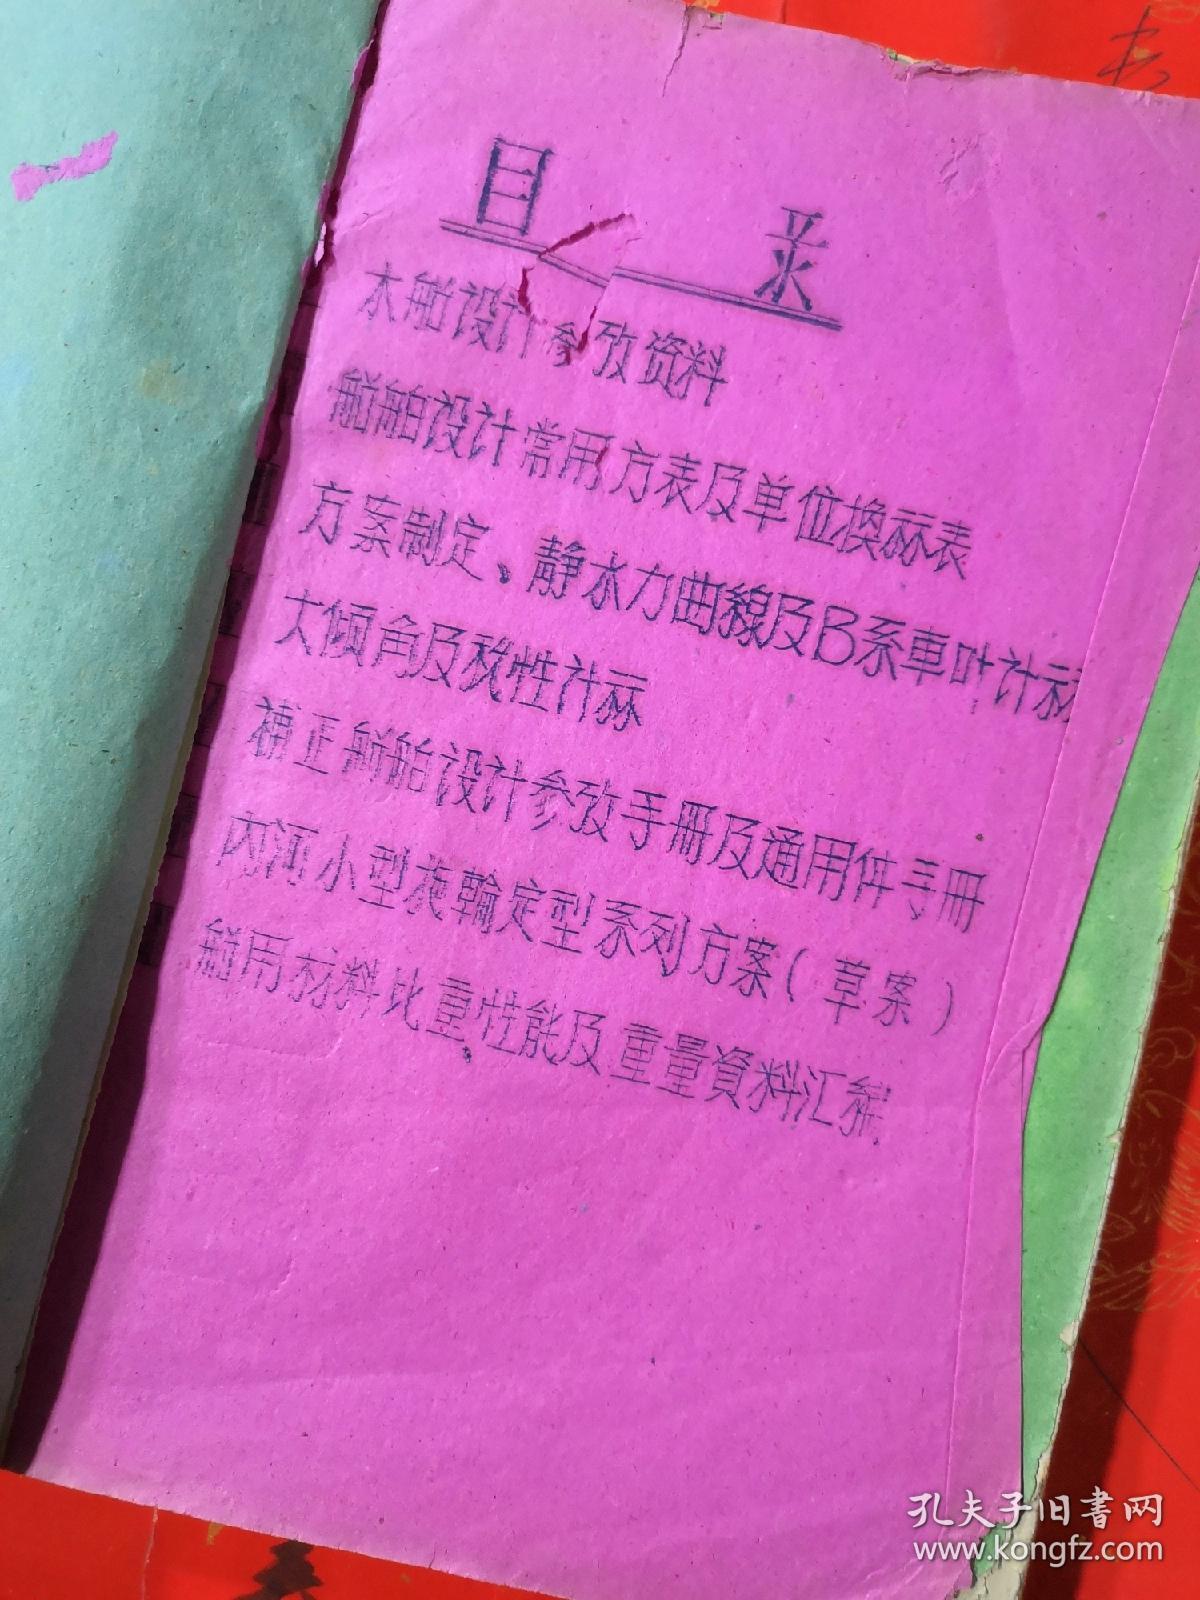 目录
木船设计参考资料
船舶设计常用方表及单位换祘表
方案制定、静水力曲線及B系車叶计祘
大倾角及稳性计祘
補正船舶设计参考手册及通用件手册
内河小型拖輪定型系列方案(草案)
船用材料比重性能及重量資料汇编
孔夫子旧書网
www.kongfz.com